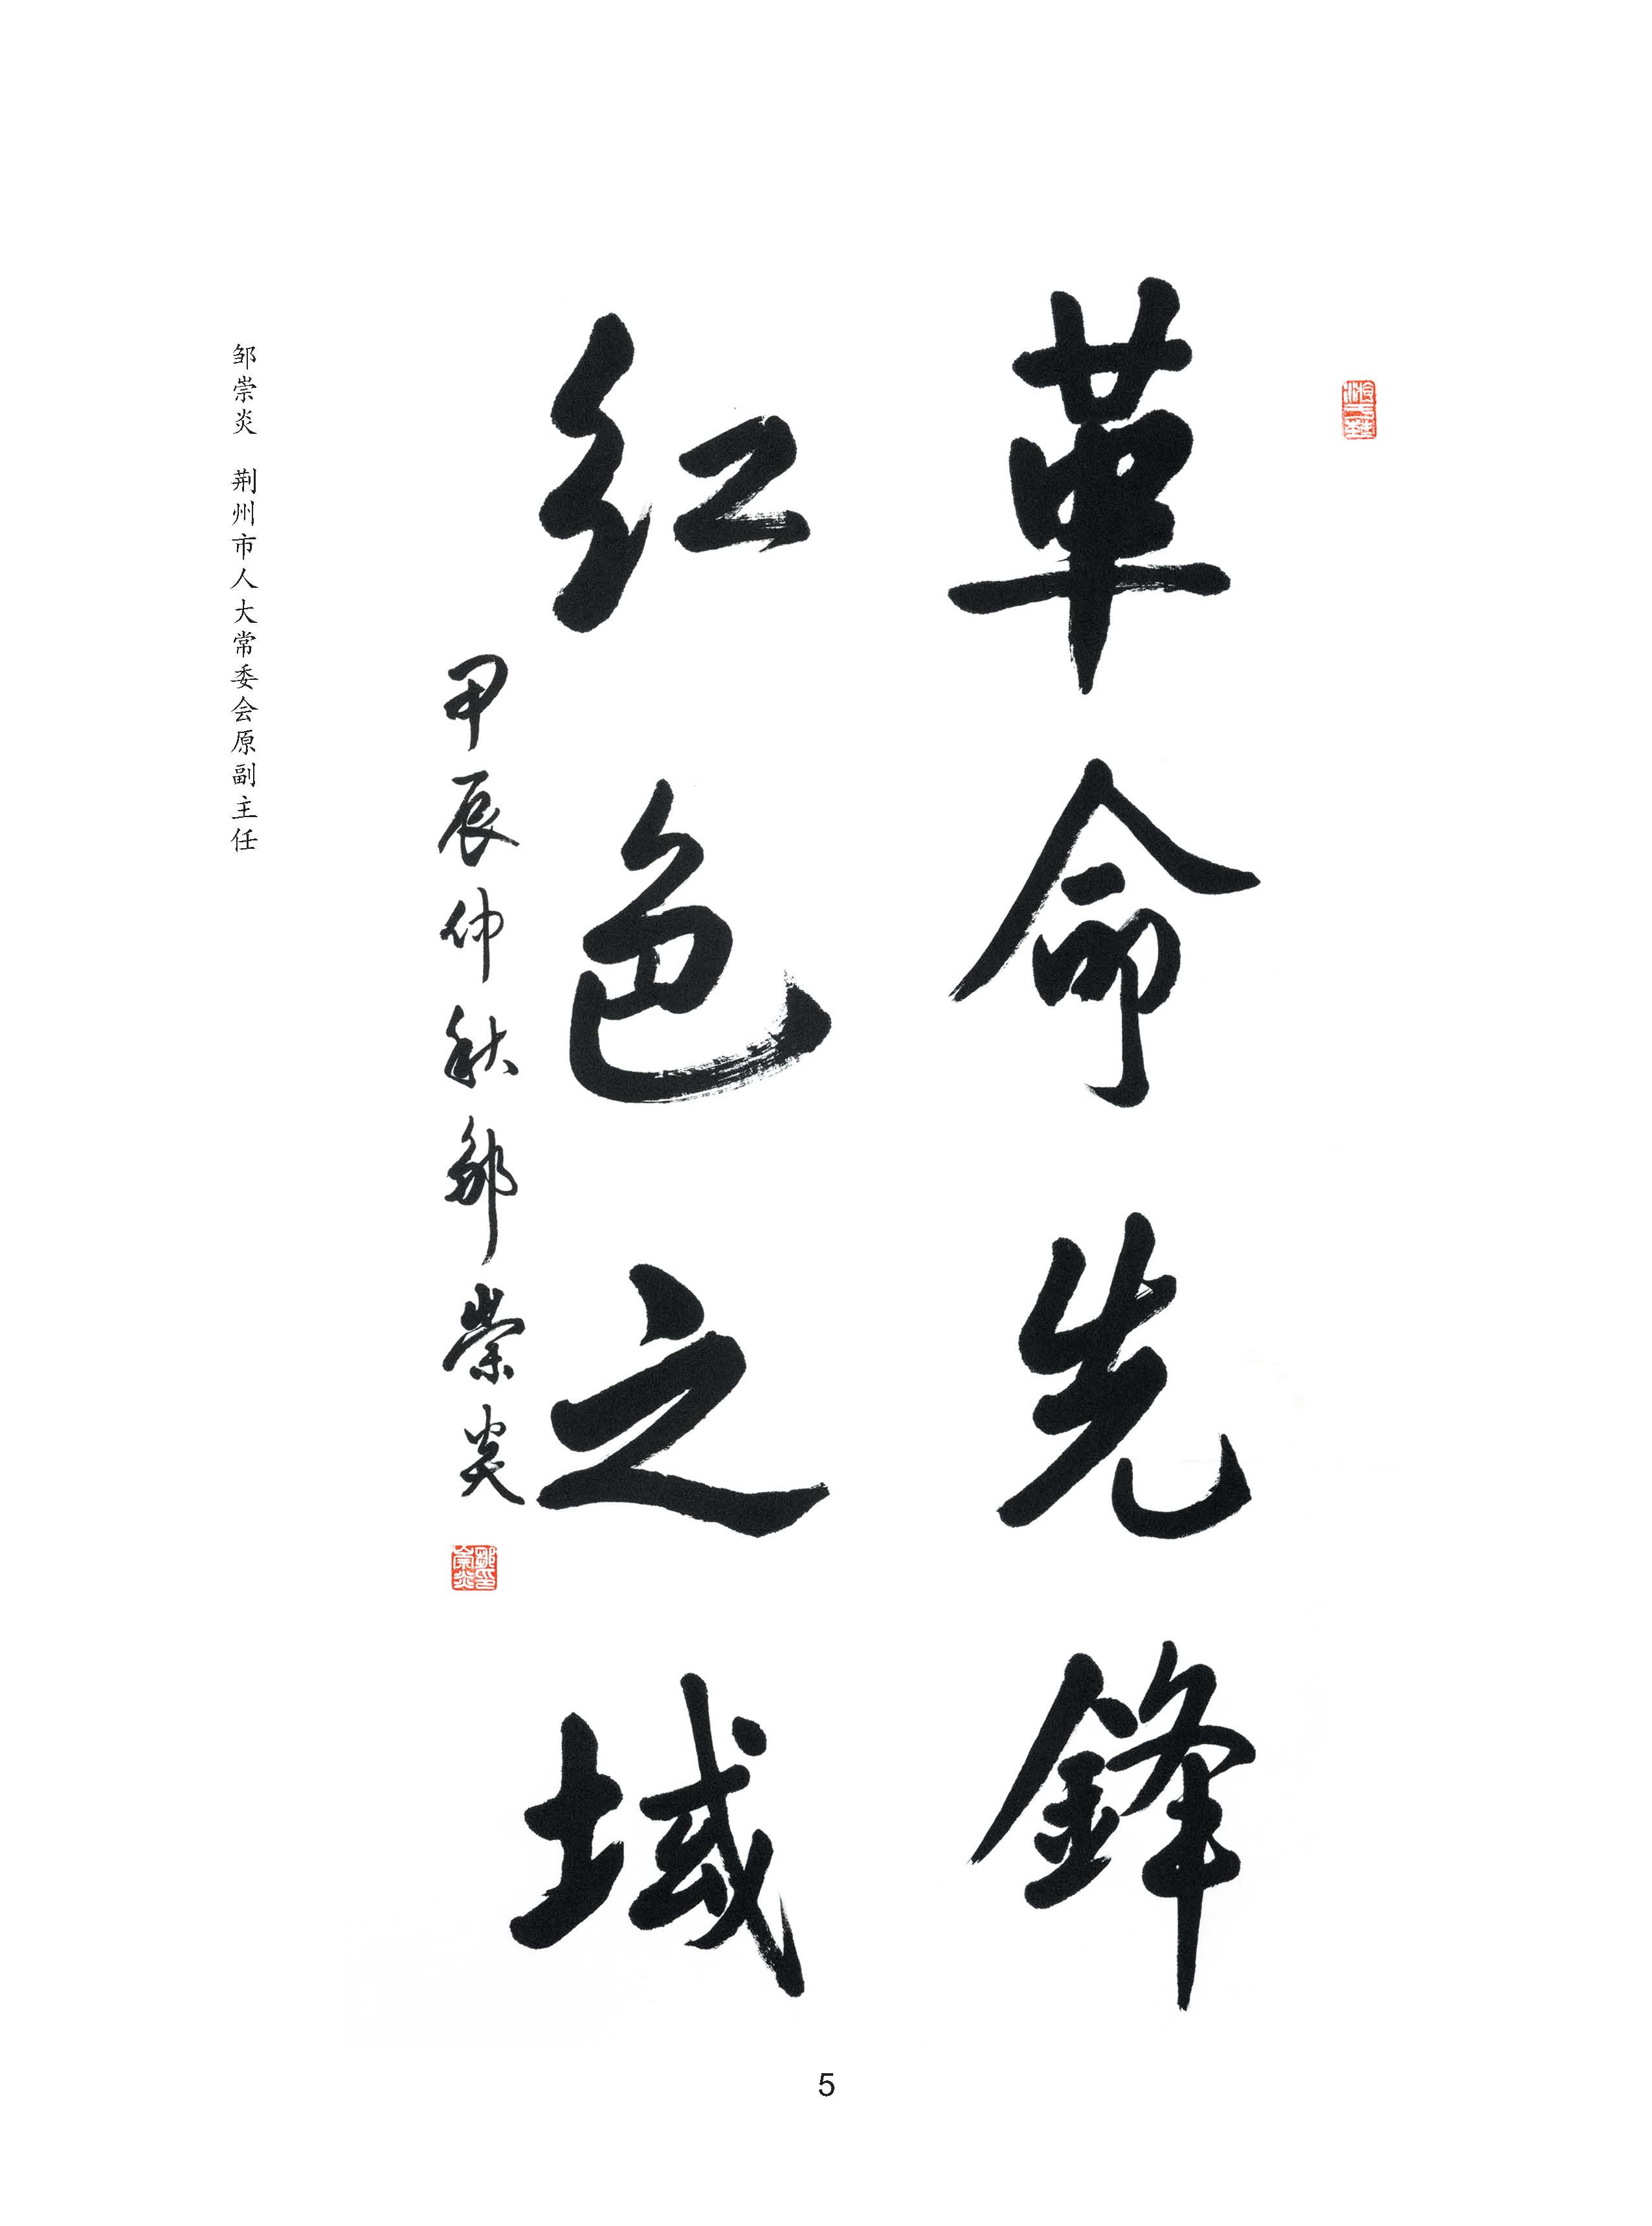 革命先鋒
红色之域
甲辰仲秋邹崇炎
邹崇炎 荆州市人大常委会原副主任
5